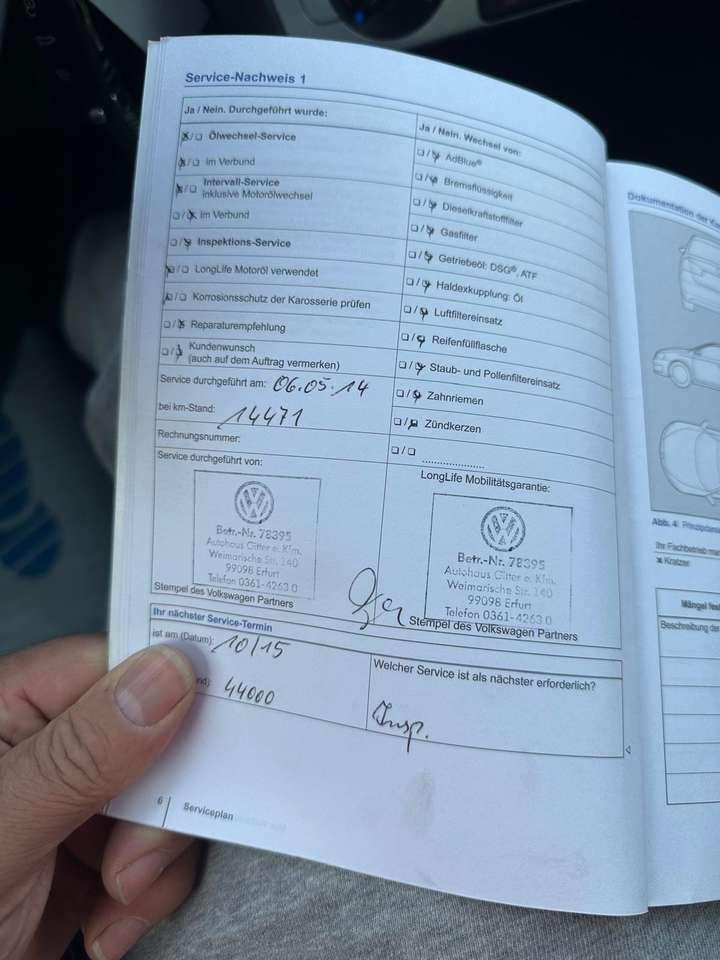 Service-Nachweis 1
Ja / Nein. Durchgeführt wurde:
☒/☐ Ölwechsel-Service
☒/☐ im Verbund
☒/☐ Intervall-Service
inklusive Motorölwechsel
☐/☒ im Verbund
☐/☒ Inspektions-Service
☒/☐ LongLife Motoröl verwendet
☒/☐ Korrosionsschutz der Karosserie prüfen
☐/☒ Reparaturempfehlung
☐/☒ Kundenwunsch
(auch auf dem Auftrag vermerken)
Service durchgeführt am: 06.05.14
bei km-Stand: 14471
Rechnungsnummer:
Service durchgeführt von:
Betr.-Nr. 78395
Autohaus Gitter e. Kfm.
Weimarische Str. 140
99098 Erfurt
Telefon 0361-4263 0
Stempel des Volkswagen Partners
Ja / Nein. Wechsel von:
☐/☒ AdBlue®
☐/☒ Bremsflüssigkeit
☐/☒ Dieselkraftstofffilter
☐/☒ Gasfilter
☐/☒ Getriebeöl: DSG®, ATF
☐/☒ Haldexkupplung: Öl
☐/☒ Luftfiltereinsatz
☐/☒ Reifenfüllflasche
☐/☒ Staub- und Pollenfiltereinsatz
☐/☒ Zahnriemen
☐/☒ Zündkerzen
☐/☐ ....................
LongLife Mobilitätsgarantie:
Betr.-Nr. 78395
Autohaus Gitter e. Kfm.
Weimarische Str. 140
99098 Erfurt
Telefon 0361-4263 0
Stempel des Volkswagen Partners
Ihr nächster Service-Termin
ist am (Datum): 10/15
nd): 44000
Welcher Service ist als nächster erforderlich?
Insp.
6 Serviceplan
Dokumentation der
Abb. 4
Ihr Fachbetrieb
Kratzer
Mängel
Beschreibung der